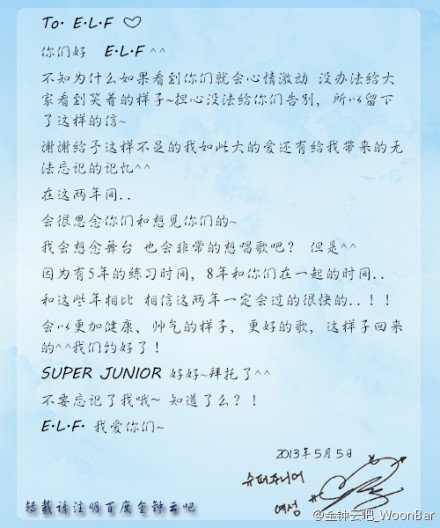 To: E·L·F ♡
你们好 E·L·F ^^
不知为什么如果看到你们就会心情激动 没办法给大
家看到笑着的样子~担心没法给你们告别，所以留下
了这样的信~
谢谢给予这样不足的我如此大的爱还有给我带来的无
法忘记的记忆^^
在这两年间..
会很思念你们和想见你们的~
我会想念舞台 也会非常的想唱歌吧？ 但是^^
因为有5年的练习时间，8年和你们在一起的时间..
和这些年相比 相信这两年一定会过的很快的..！！
会以更加健康、帅气的样子，更好的歌，这样子回来
的^^我们约好了！
SUPER JUNIOR 好好~拜托了^^
不要忘记了我哦~ 知道了么？！
E·L·F· 我爱你们~
2013年5月5日
슈퍼주니어
예성
转载请注明百度金钟云吧
@金钟云吧_WoonBar